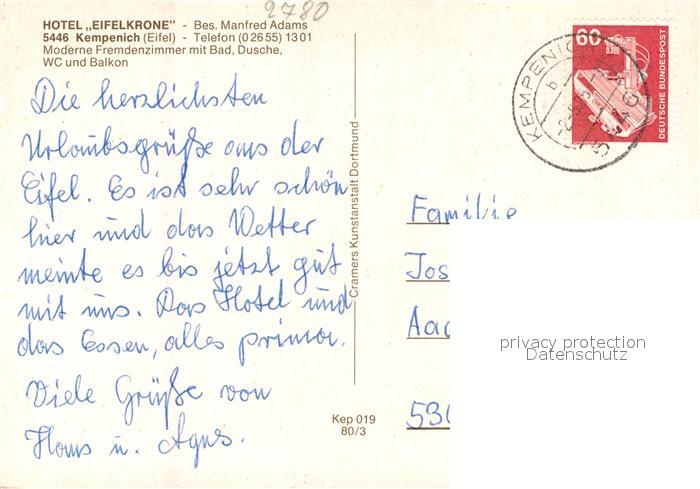 2780
HOTEL „EIFELKRONE" - Bes. Manfred Adams
5446 Kempenich (Eifel) - Telefon (0 26 55) 13 01
Moderne Fremdenzimmer mit Bad, Dusche,
WC und Balkon
60
DEUTSCHE BUNDESPOST
KEMPENICH
Die herzlichsten
Urlaubsgrüße aus der
Eifel. Es ist sehr schön
hier und das Wetter
meinte es bis jetzt gut
mit uns. Das Hotel und
das Essen, alles prima.
Viele Grüße von
Hans u. Agnes.
Cramers Kunstanstalt Dortmund
Kep 019
80/3
Familie
Jos
Aac
530
privacy protection
Datenschutz